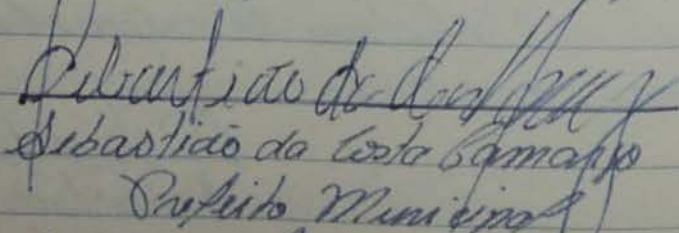 Sebastião da
Sebastião da Costa Camargo
Prefeito Municipal